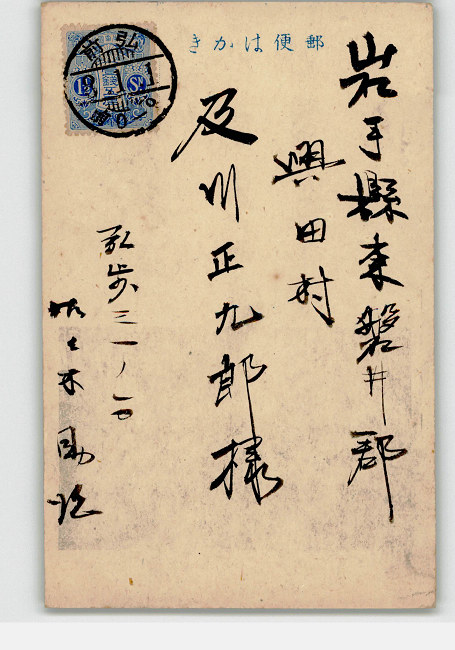 郵便はがき
岩手縣東磐井郡
興田村
及川正九郎様
弘歩三一ノ一
佐々木
弘前